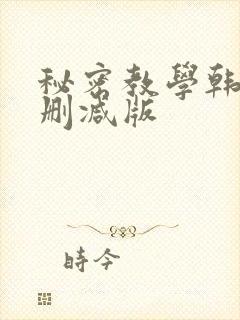 秘密教學韩
删减版
時今